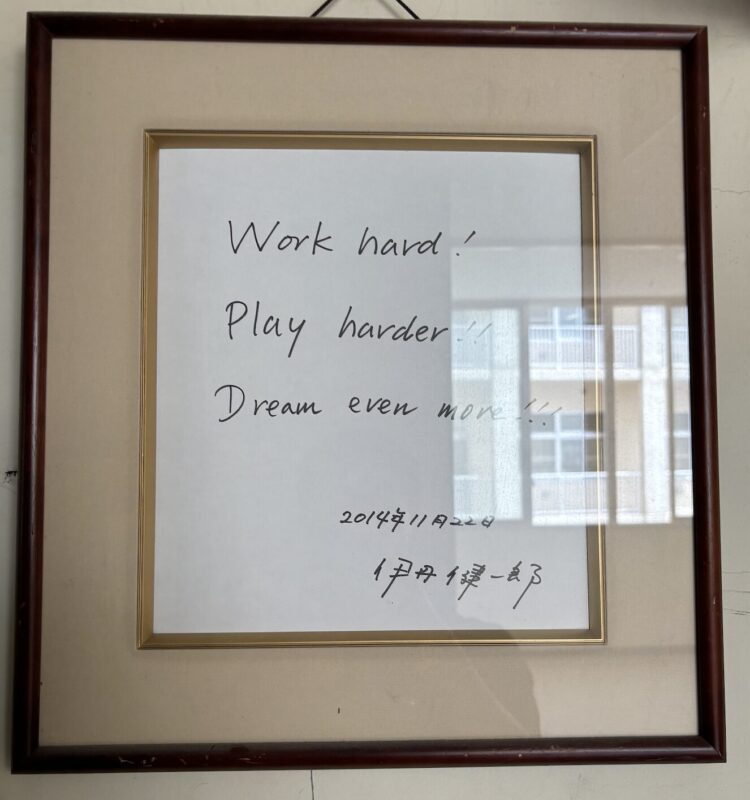 Work hard!
Play harder!!
Dream even more!!!
2014年11月22日
伊丹健一郎